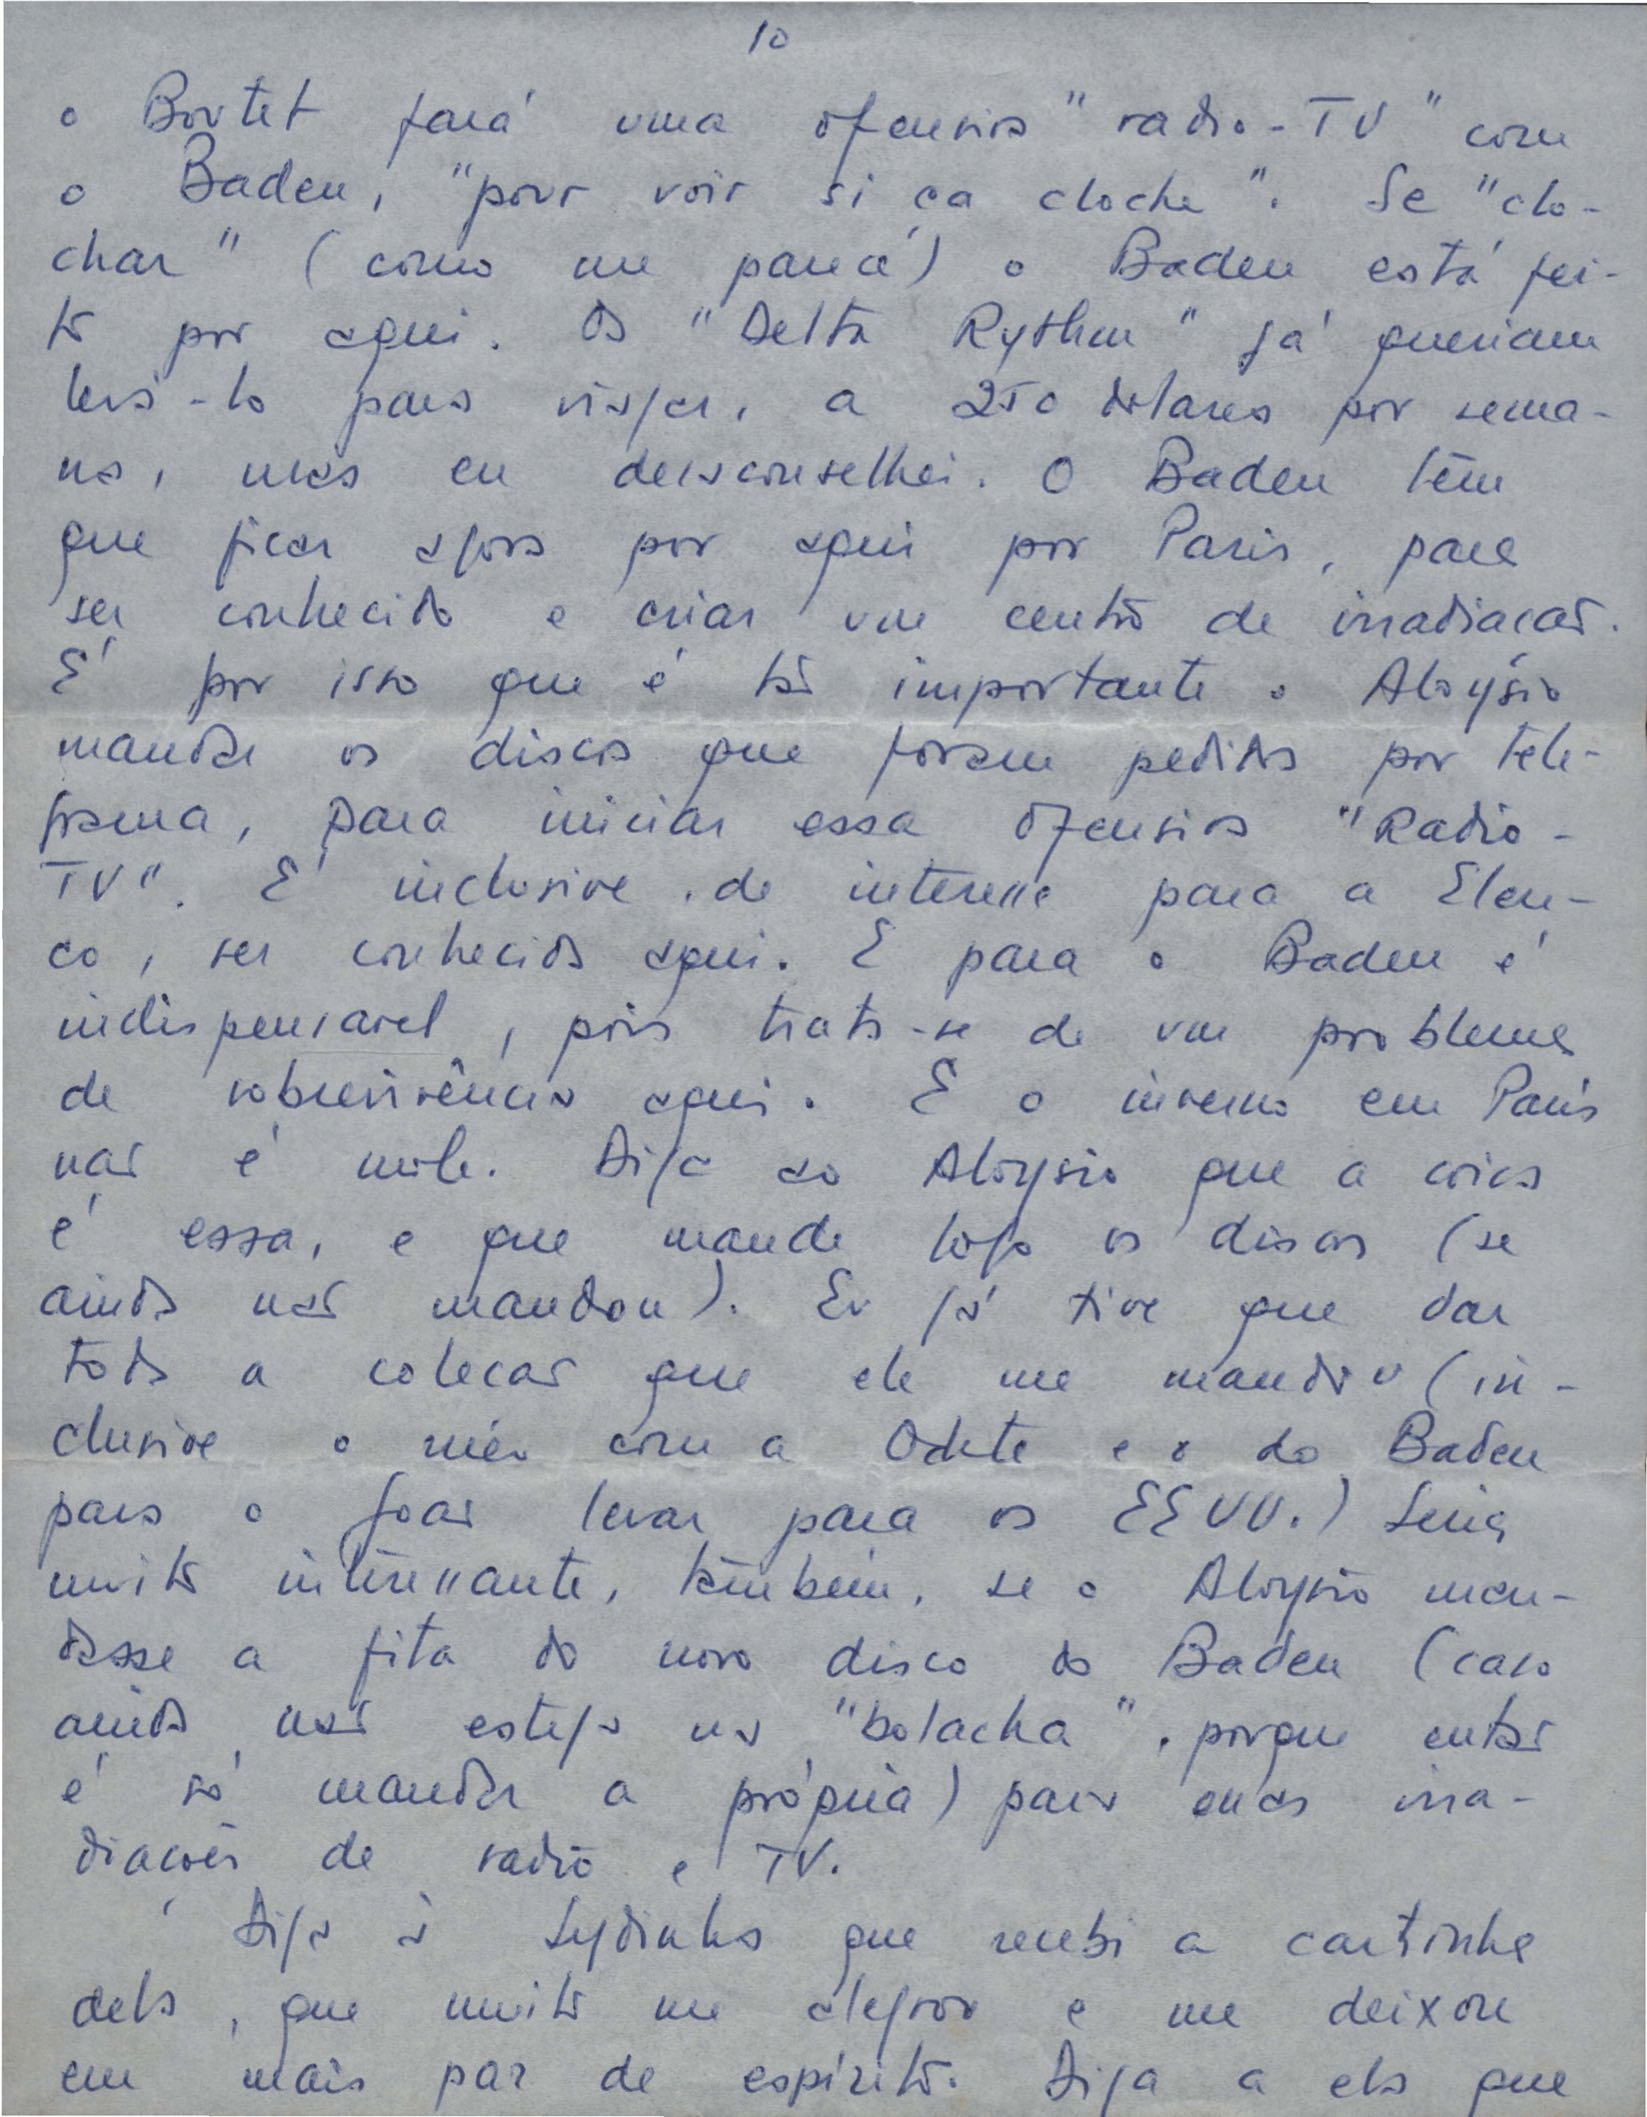 10
o Boutet fará uma ofensiva "radio-TV" com
o Baden, "pour voir si ça cloche". Se "clo-
char" (como me parece) o Baden está fei-
to por aqui. Os "Delta Rythm" já queriam
levá-lo para viajar, a 250 dolares por sema-
na, mas eu desaconselhei. O Baden têm
que ficar agora por aqui por Paris, para
ser conhecido e criar um centro de irradiacão.
É por isso que é tão importante o Aloysio
mandar os discos que foram pedidos por tele-
grama, para iniciar essa ofensiva "Radio-
TV". É inclusive de interesse para a Elen-
co, ser conhecida aqui. E para o Baden é
indispensavel, pois trata-se de um problema
de sobrevivência aqui. E o inverno em Paris
não é mole. Diga ao Aloysio que a coisa
é essa, e que mande logo os discos (se
ainda não mandou). Eu já tive que dar
toda a colecão que ele me mandou (in-
clusive o meu com a Odete e o do Baden
para o João levar para os EEUU.) Seria
muito interessante, também, se o Aloysio man-
dasse a fita do novo disco do Baden (caso
ainda não esteja na "bolacha", porque então
é só mandar a própria) para essas irra-
diacões de radio e TV.
Diga à Lydinha que recebi a cartinha
dela, que muito me alegrou e me deixou
em mais paz de espírito. Diga a ela que